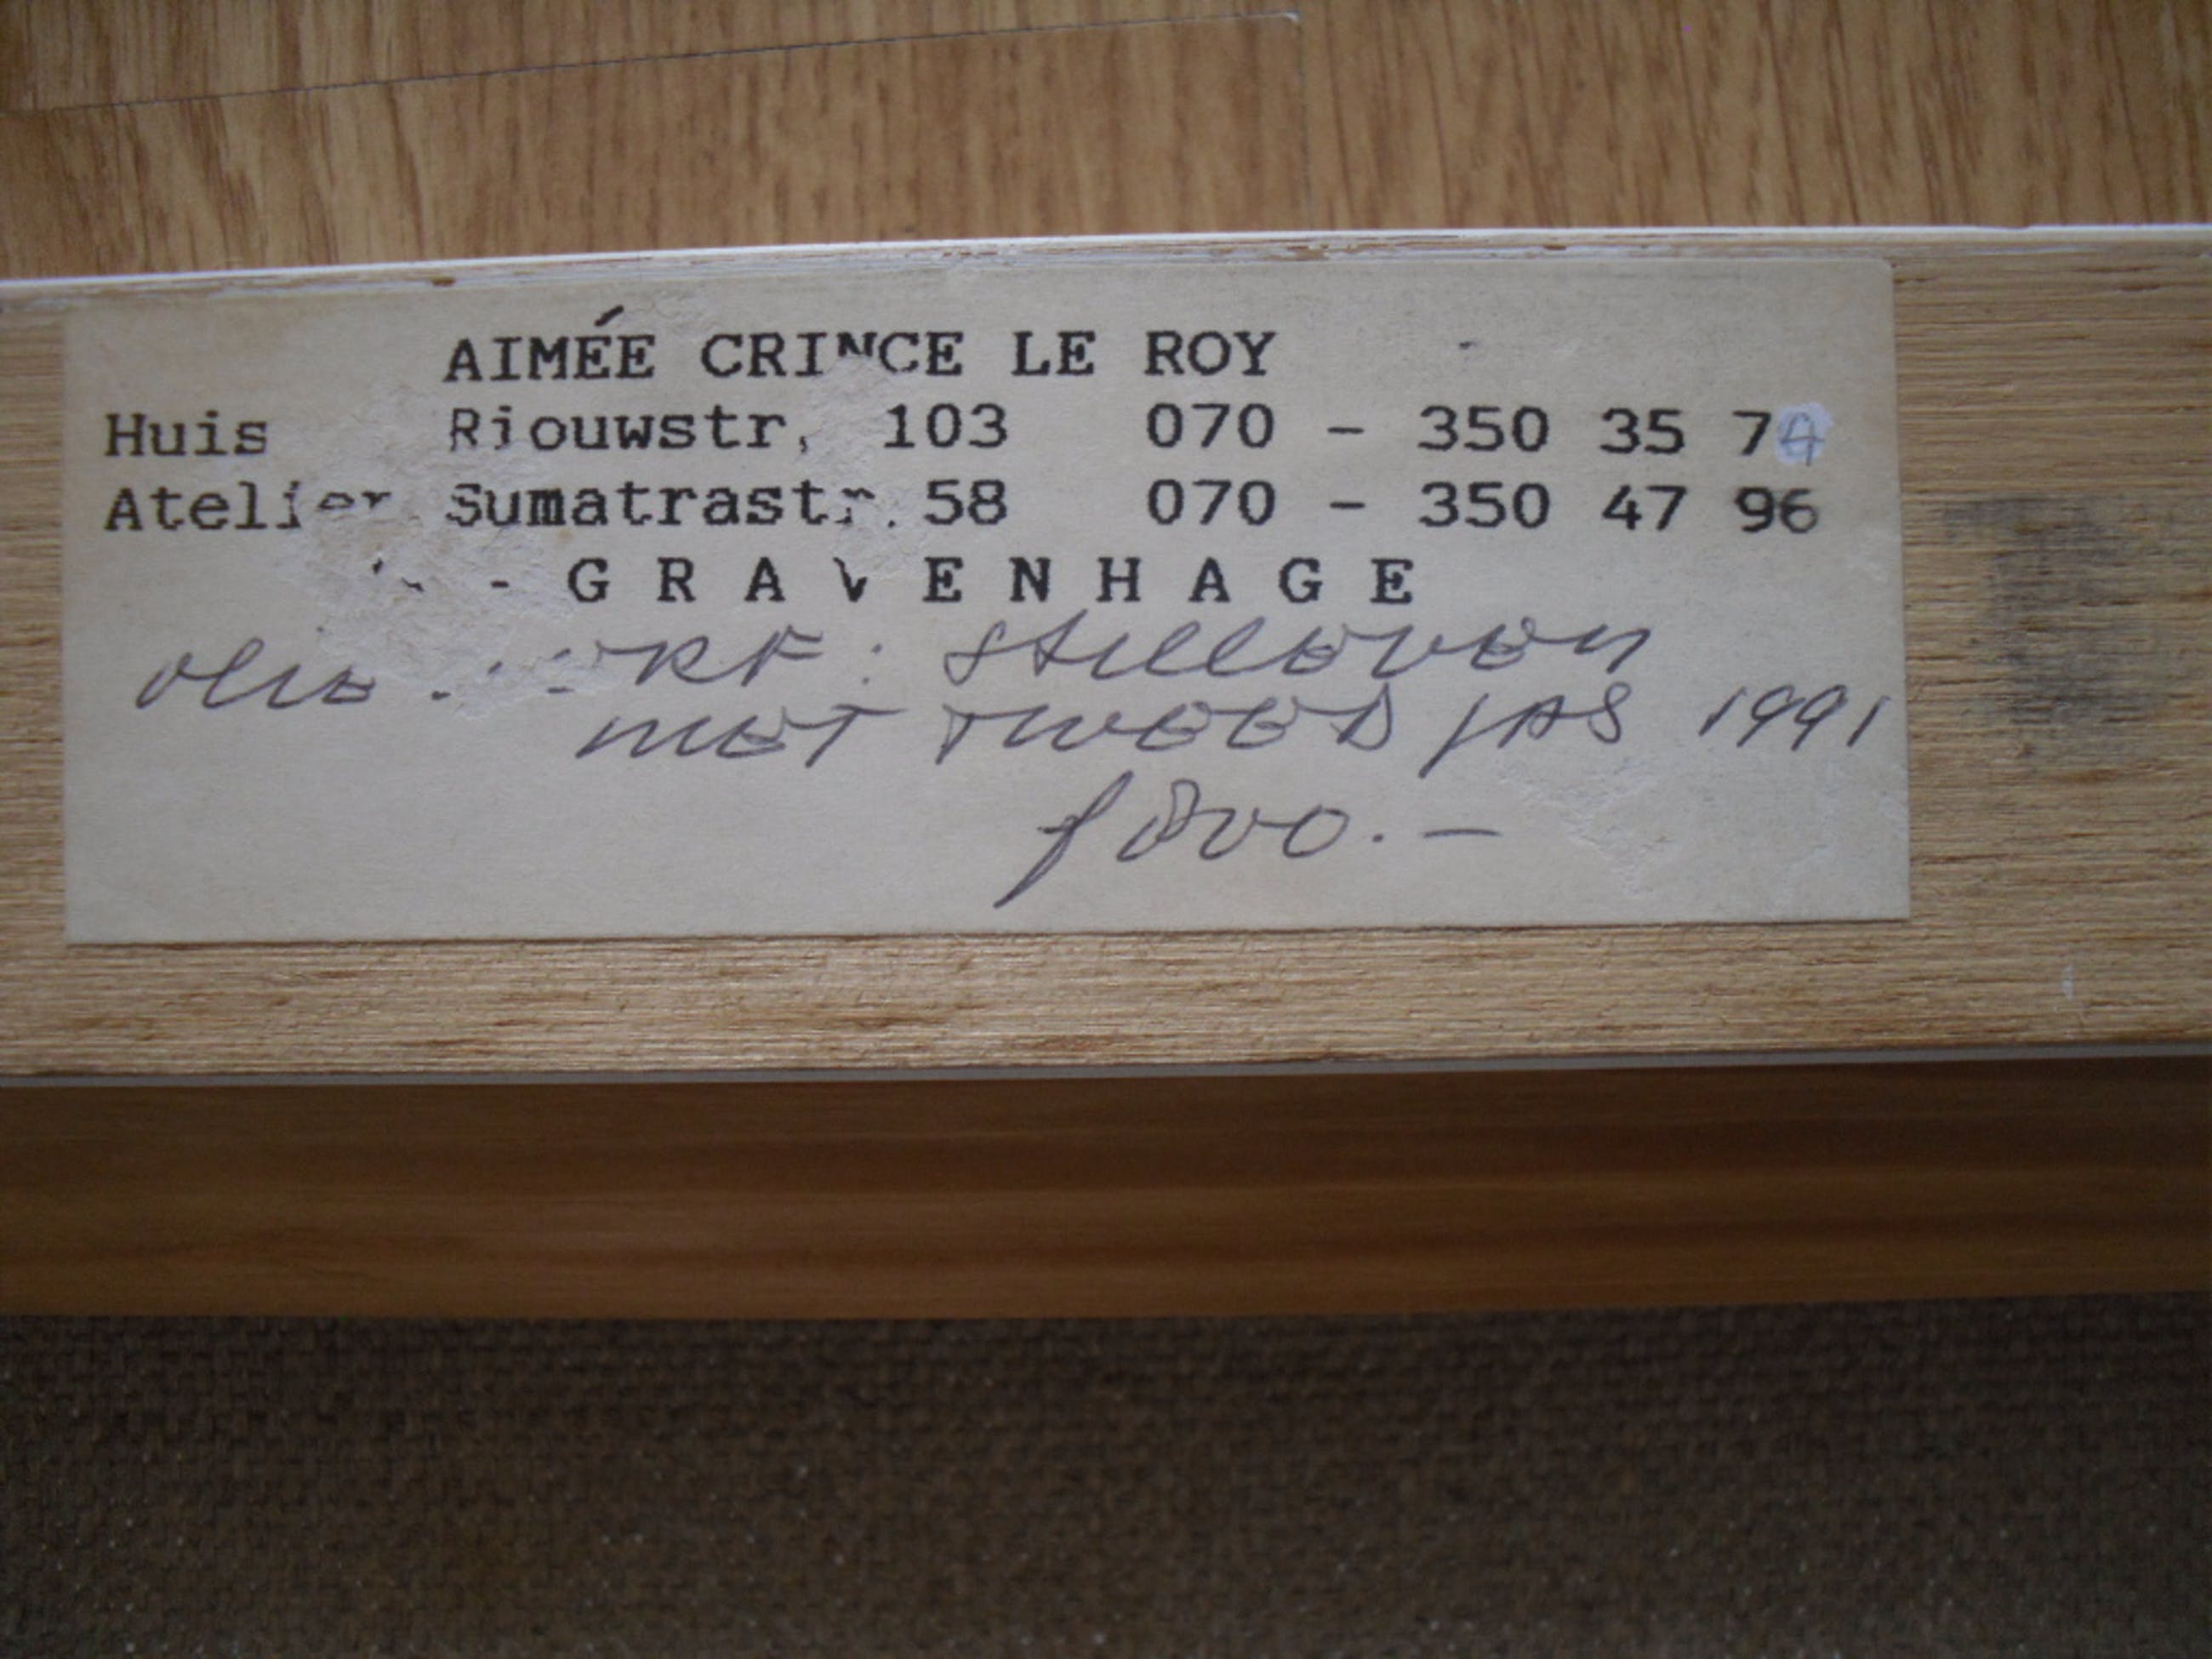 AIMÉE CRINCE LE ROY
Huis Riouwstr. 103 070 - 350 35 74
Atelier Sumatrastr. 58 070 - 350 47 96
- GRAVENHAGE
olie : Stilleven
met tweed jas 1991
f 800.-